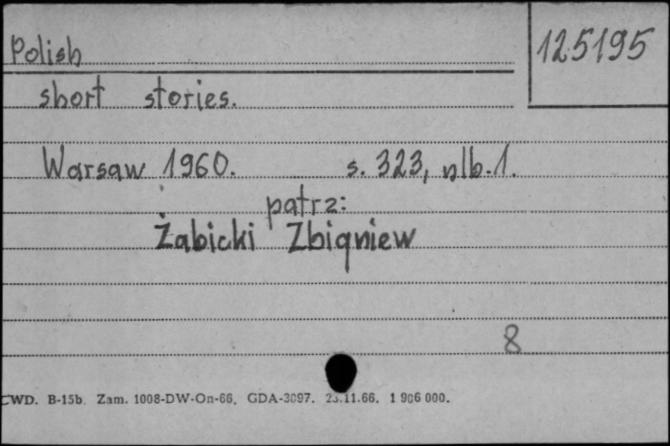 125195
Polish
short stories.
Warsaw 1960. s. 323, nlb. 1.
patrz:
Żabicki Zbigniew
8
CWD. B-15b. Zam. 1008-DW-On-66. GDA-3097. 23.11.66. 1 906 000.